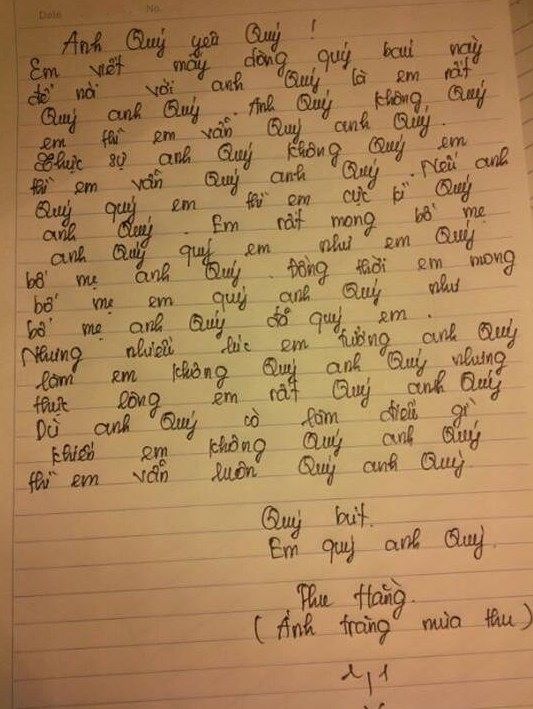 Date No.
Anh Quý yêu Quý !
Em viết mấy dòng quý baú này
để nói với anh Quý là em rất
Quý anh Quý. Anh Quý không Quý
em thì em vẫn Quý anh Quý.
Thực sự anh Quý không Quý em
thì em vẫn Quý anh Quý. Nếu anh
Quý quý em thì em cực kì Quý
anh Quý. Em rất mong bố mẹ
anh Quý quý em như em Quý
bố mẹ anh Quý. Đồng thời em mong
bố mẹ em quý anh Quý như
bố mẹ anh Quý đã quý em.
Nhưng nhiều lúc em tưởng anh Quý
làm em không Quý anh Quý nhưng
thực lòng em rất Quý anh Quý
Dù anh Quý có làm điều gì
khiến em không Quý anh Quý
thì em vẫn luôn Quý anh Quý
Quý bút.
Em quý anh Quý.
Thu Hằng.
( Ánh trăng mùa thu )